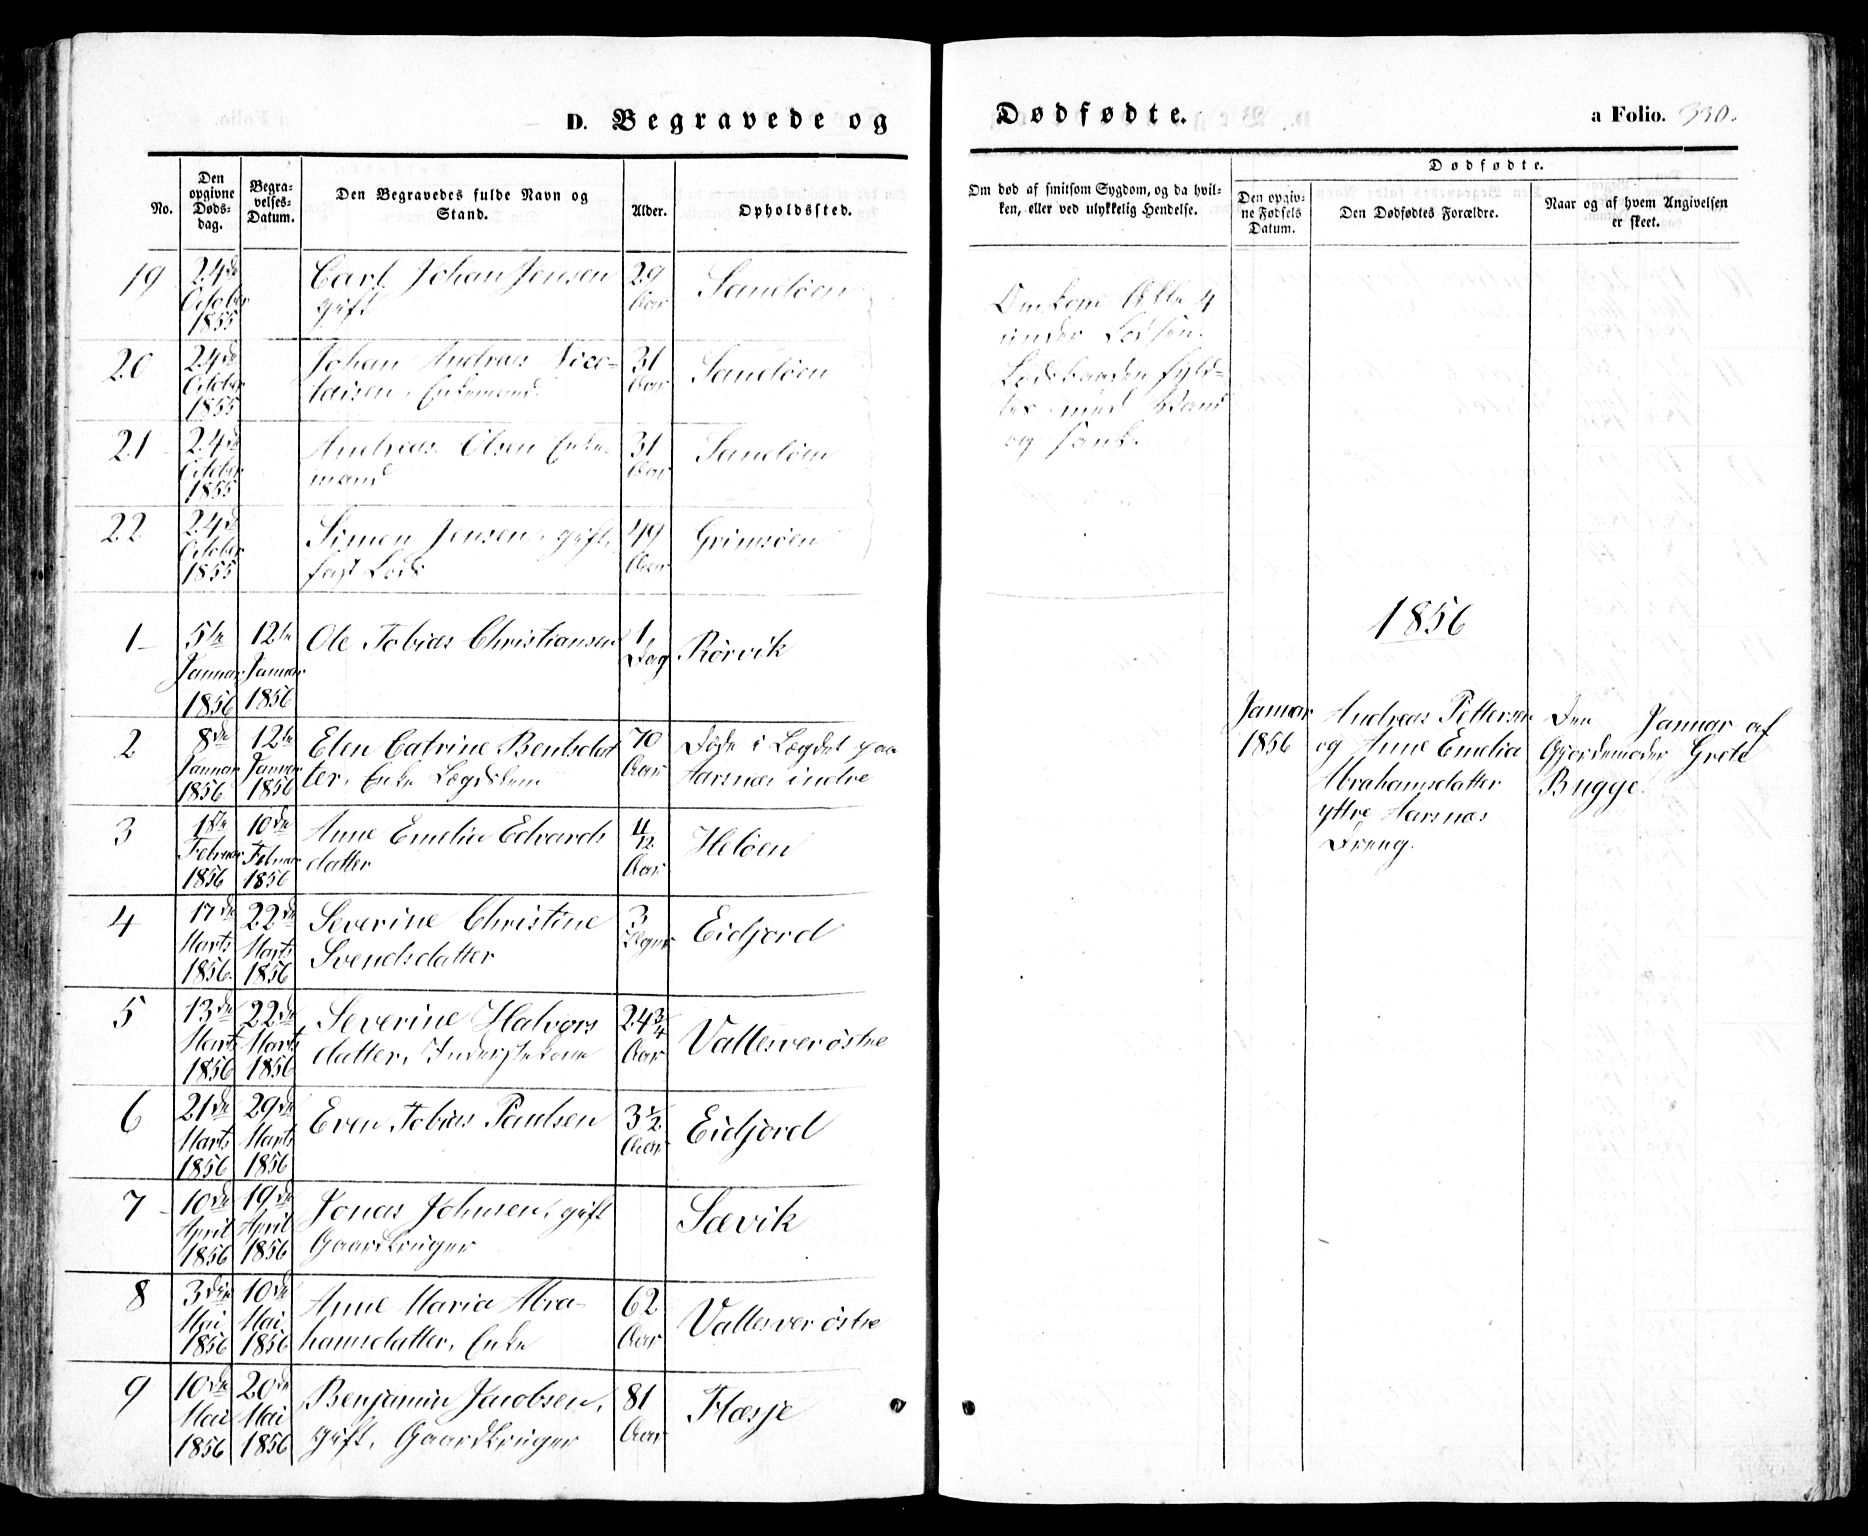 D. Begravede og Dødfødte.
a Folio. 330.
No.
Den opgivne Dødsdag.
Begravelses-Datum.
Den Begravedes fulde Navn og Stand.
Alder.
Opholdssted.
Om død af smitsom Sygdom, og da hvilken, eller ved ulykkelig Hendelse.
Dødfødte.
Den opgivne Fødsels Datum.
Den Dødfødtes Forældre.
Naar og af hvem Angivelsen er skeet.
19 24de October 1855 Carl Johan Jensen gift 29 Aar Sandøen
20 24de October 1855 Johan Andreas Nicolaisen, Enkemand. 31 Aar Sandøen
21 24de October 1855 Andreas Olsen Enkemand 31 Aar Sandøen
22 24de October 1855 Simon Jensen, gift, fast Lods 49 Aar Grimsøen
Omkom Alle 4
under Lodsen.
Lodsbaaden fyld-
tes med Vand
og sank.
1 5te Januar 1856 12te Januar 1856 Ole Tobias Christiansen 1 Dag Rørvik
2 8de Januar 1856 12te Januar 1856 Elen Catrine Bentsdatter, Enke Lægdslem 70 Aar Døde i Lægdet paa Aarsnæs indre
3 1ste Februar 1856 10de Februar 1856 Anne Emelia Edvardsdatter 4/12 Aar Heløen
4 17de Marts 1856 22de Marts 1856 Severine Christine Svendsdatter 3 Uger Eidjord
5 13de Marts 1856 22de Marts 1856 Severine Halvorsdatter, Inderstekone 24 3/4 Aar Valtesver østre
6 21de Marts 1856 29de Marts 1856 Even Tobias Paulsen 3 1/2 Aar Eidjord
7 10de April 1856 19de April 1856 Jonas Johnsen, gift Gaardbruger Sævik
8 3die Mai 1856 10de Mai 1856 Anne Maria Abrahamsdatter, Enke 62 Aar Valtesver østre
9 10de Mai 1856 20de Mai 1856 Benjamin Jacobsen, gift, Gaardbruger 81 Aar Flæsje
1856
Januar 1856
Andreas Pettersen
og Anne Emelia
Abrahamsdatter
yttre Aarsnæs
Dreng.
Den Januar af
Gjordemoder Grete
Bugge.